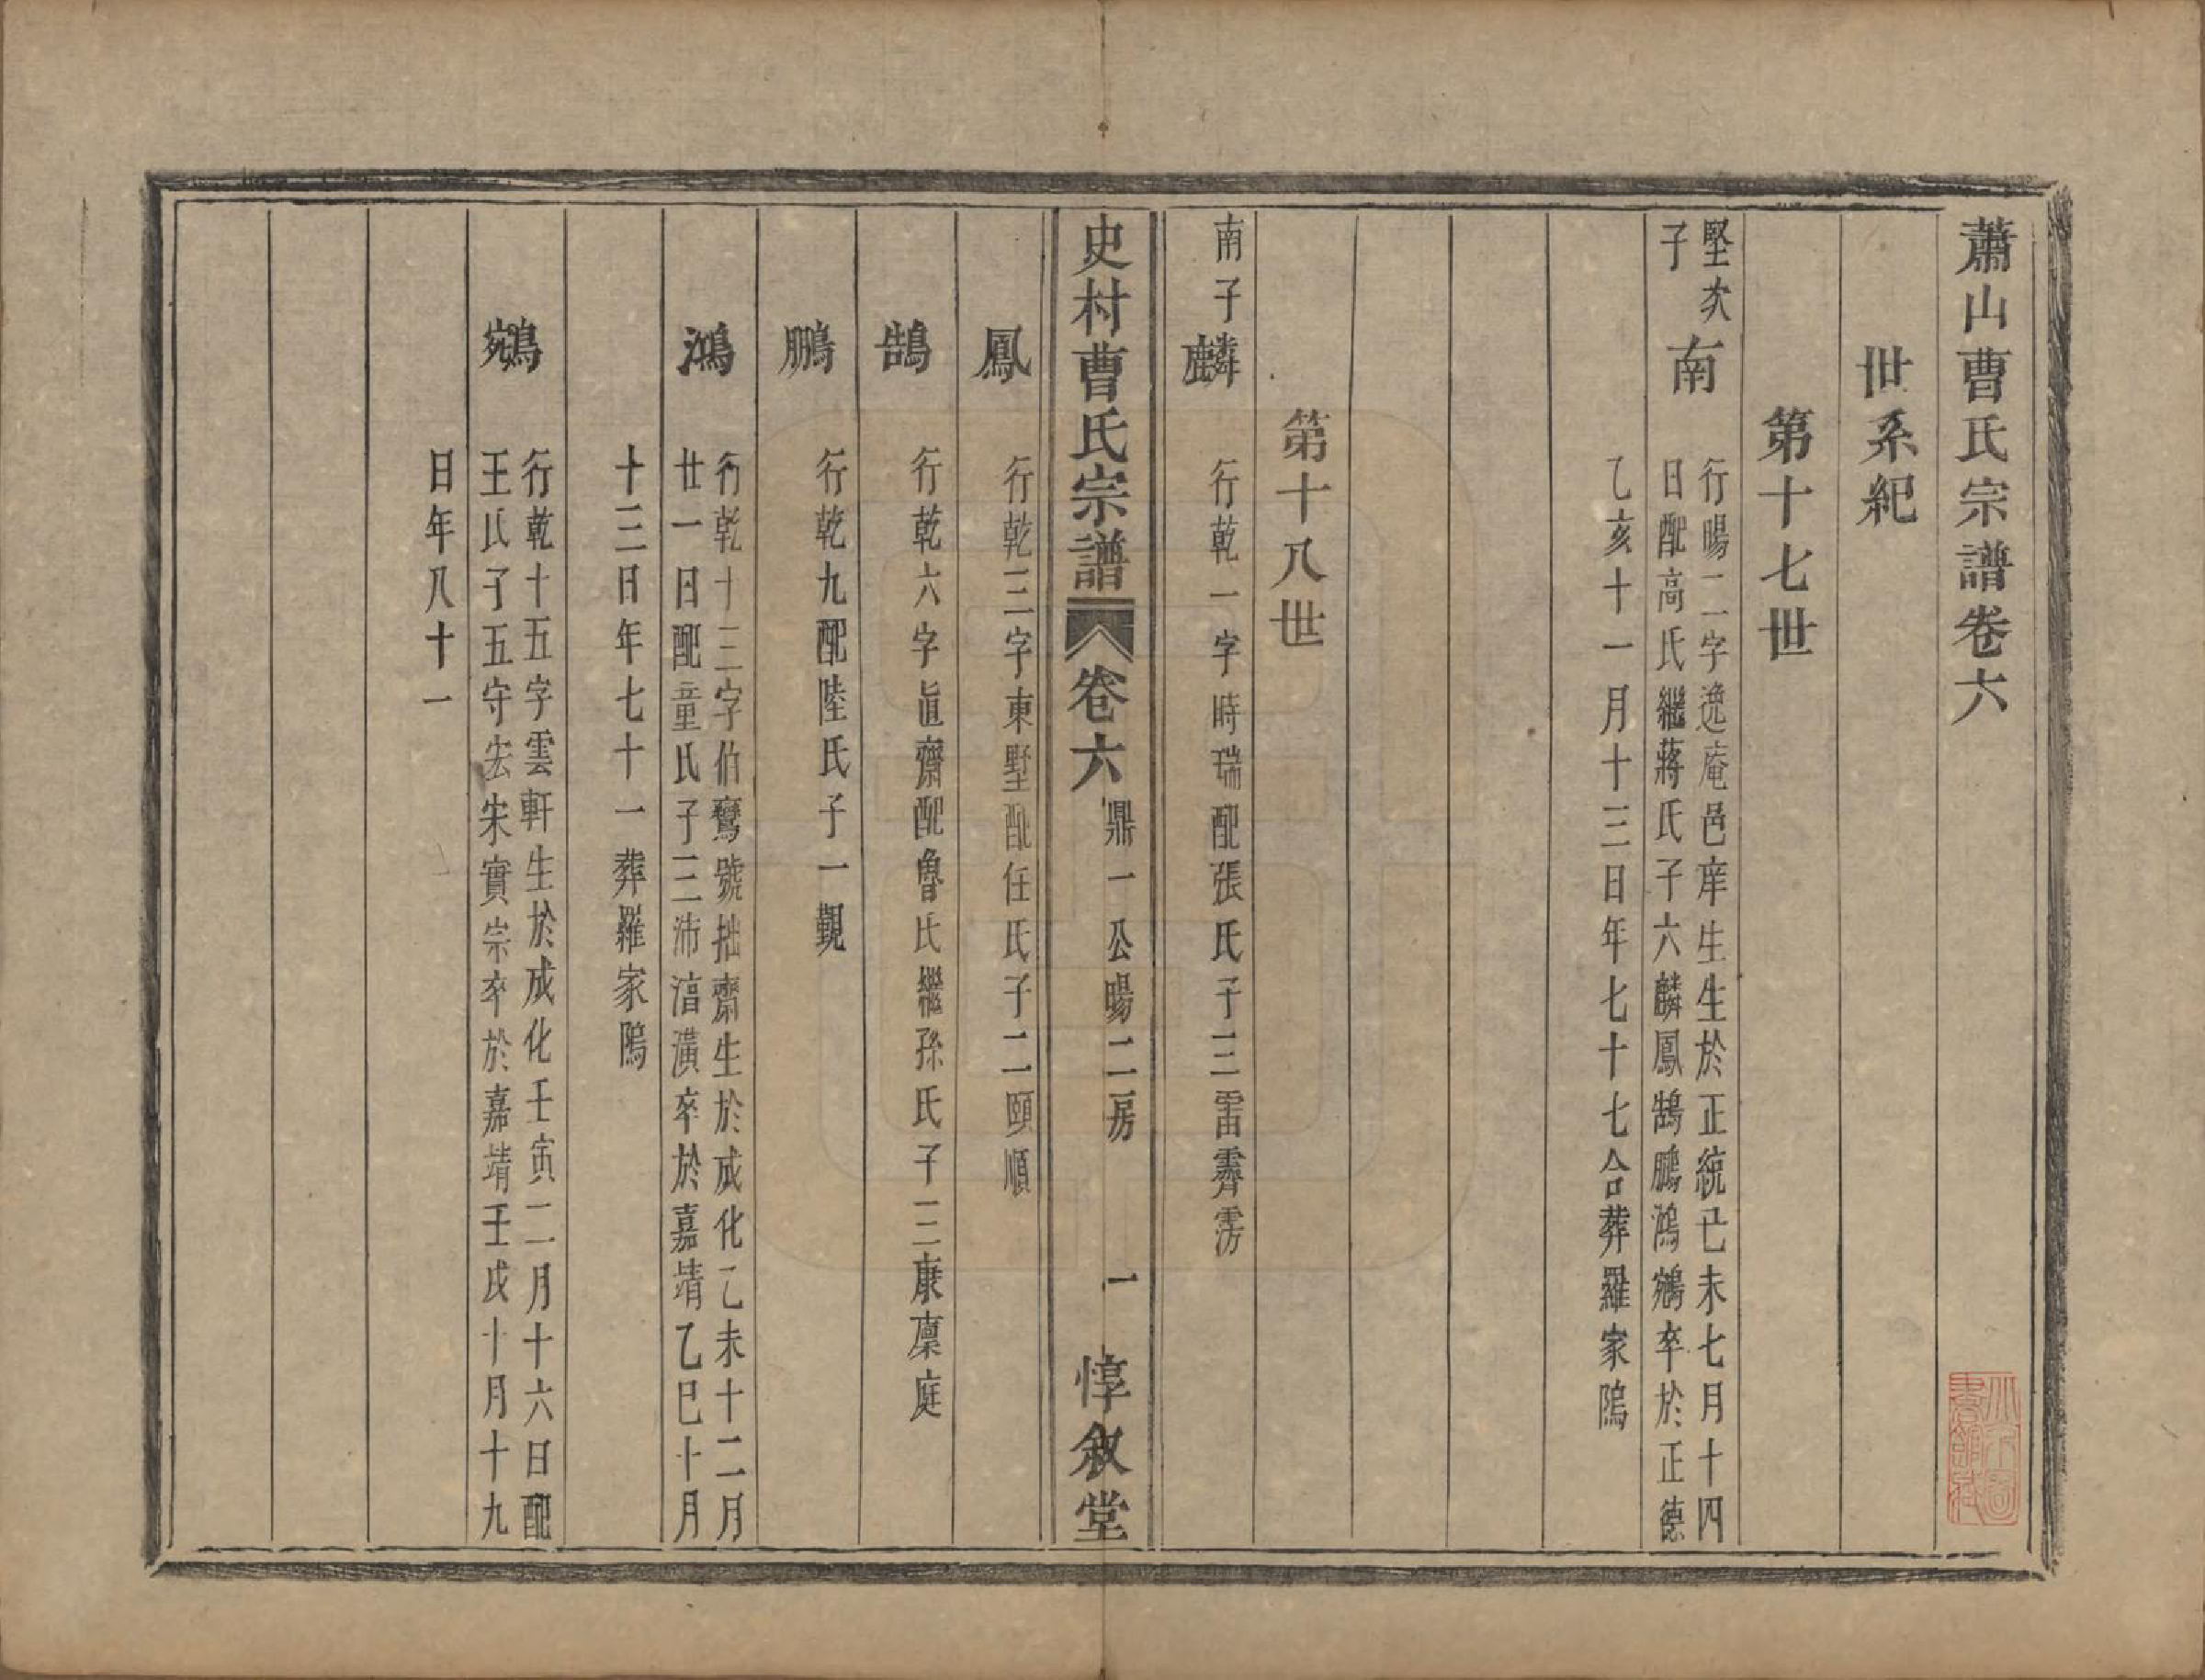 蕭山曹氏宗譜卷六
世系紀
第十七世
堅次
子
南
行暘二字逸庵邑庠生生於正統己未七月十四
日配高氏繼蔣氏子六麟鳳鵠鵬鴻鵷卒於正德
乙亥十一月十三日年七十七合葬羅家隖
第十八世
南子
麟
行乾一字時瑞配張氏子三雷霽雱
史村曹氏宗譜 卷六 鼎一公暘二房 一 惇敘堂
鳳
行乾三字東墅配任氏子二頤順
鵠
行乾六字眞齋配魯氏繼孫氏子三康凛庭
鵬
行乾九配陸氏子一觀
鴻
行乾十三字伯鸞號拙齋生於成化乙未十二月
廿一日配童氏子三沛湻潢卒於嘉靖乙巳十月
十三日年七十一葬羅家隖
鵷
行乾十五字雲軒生於成化壬寅二月十六日配
王氏子五守宏朱實宗卒於嘉靖壬戌十月十九
日年八十一